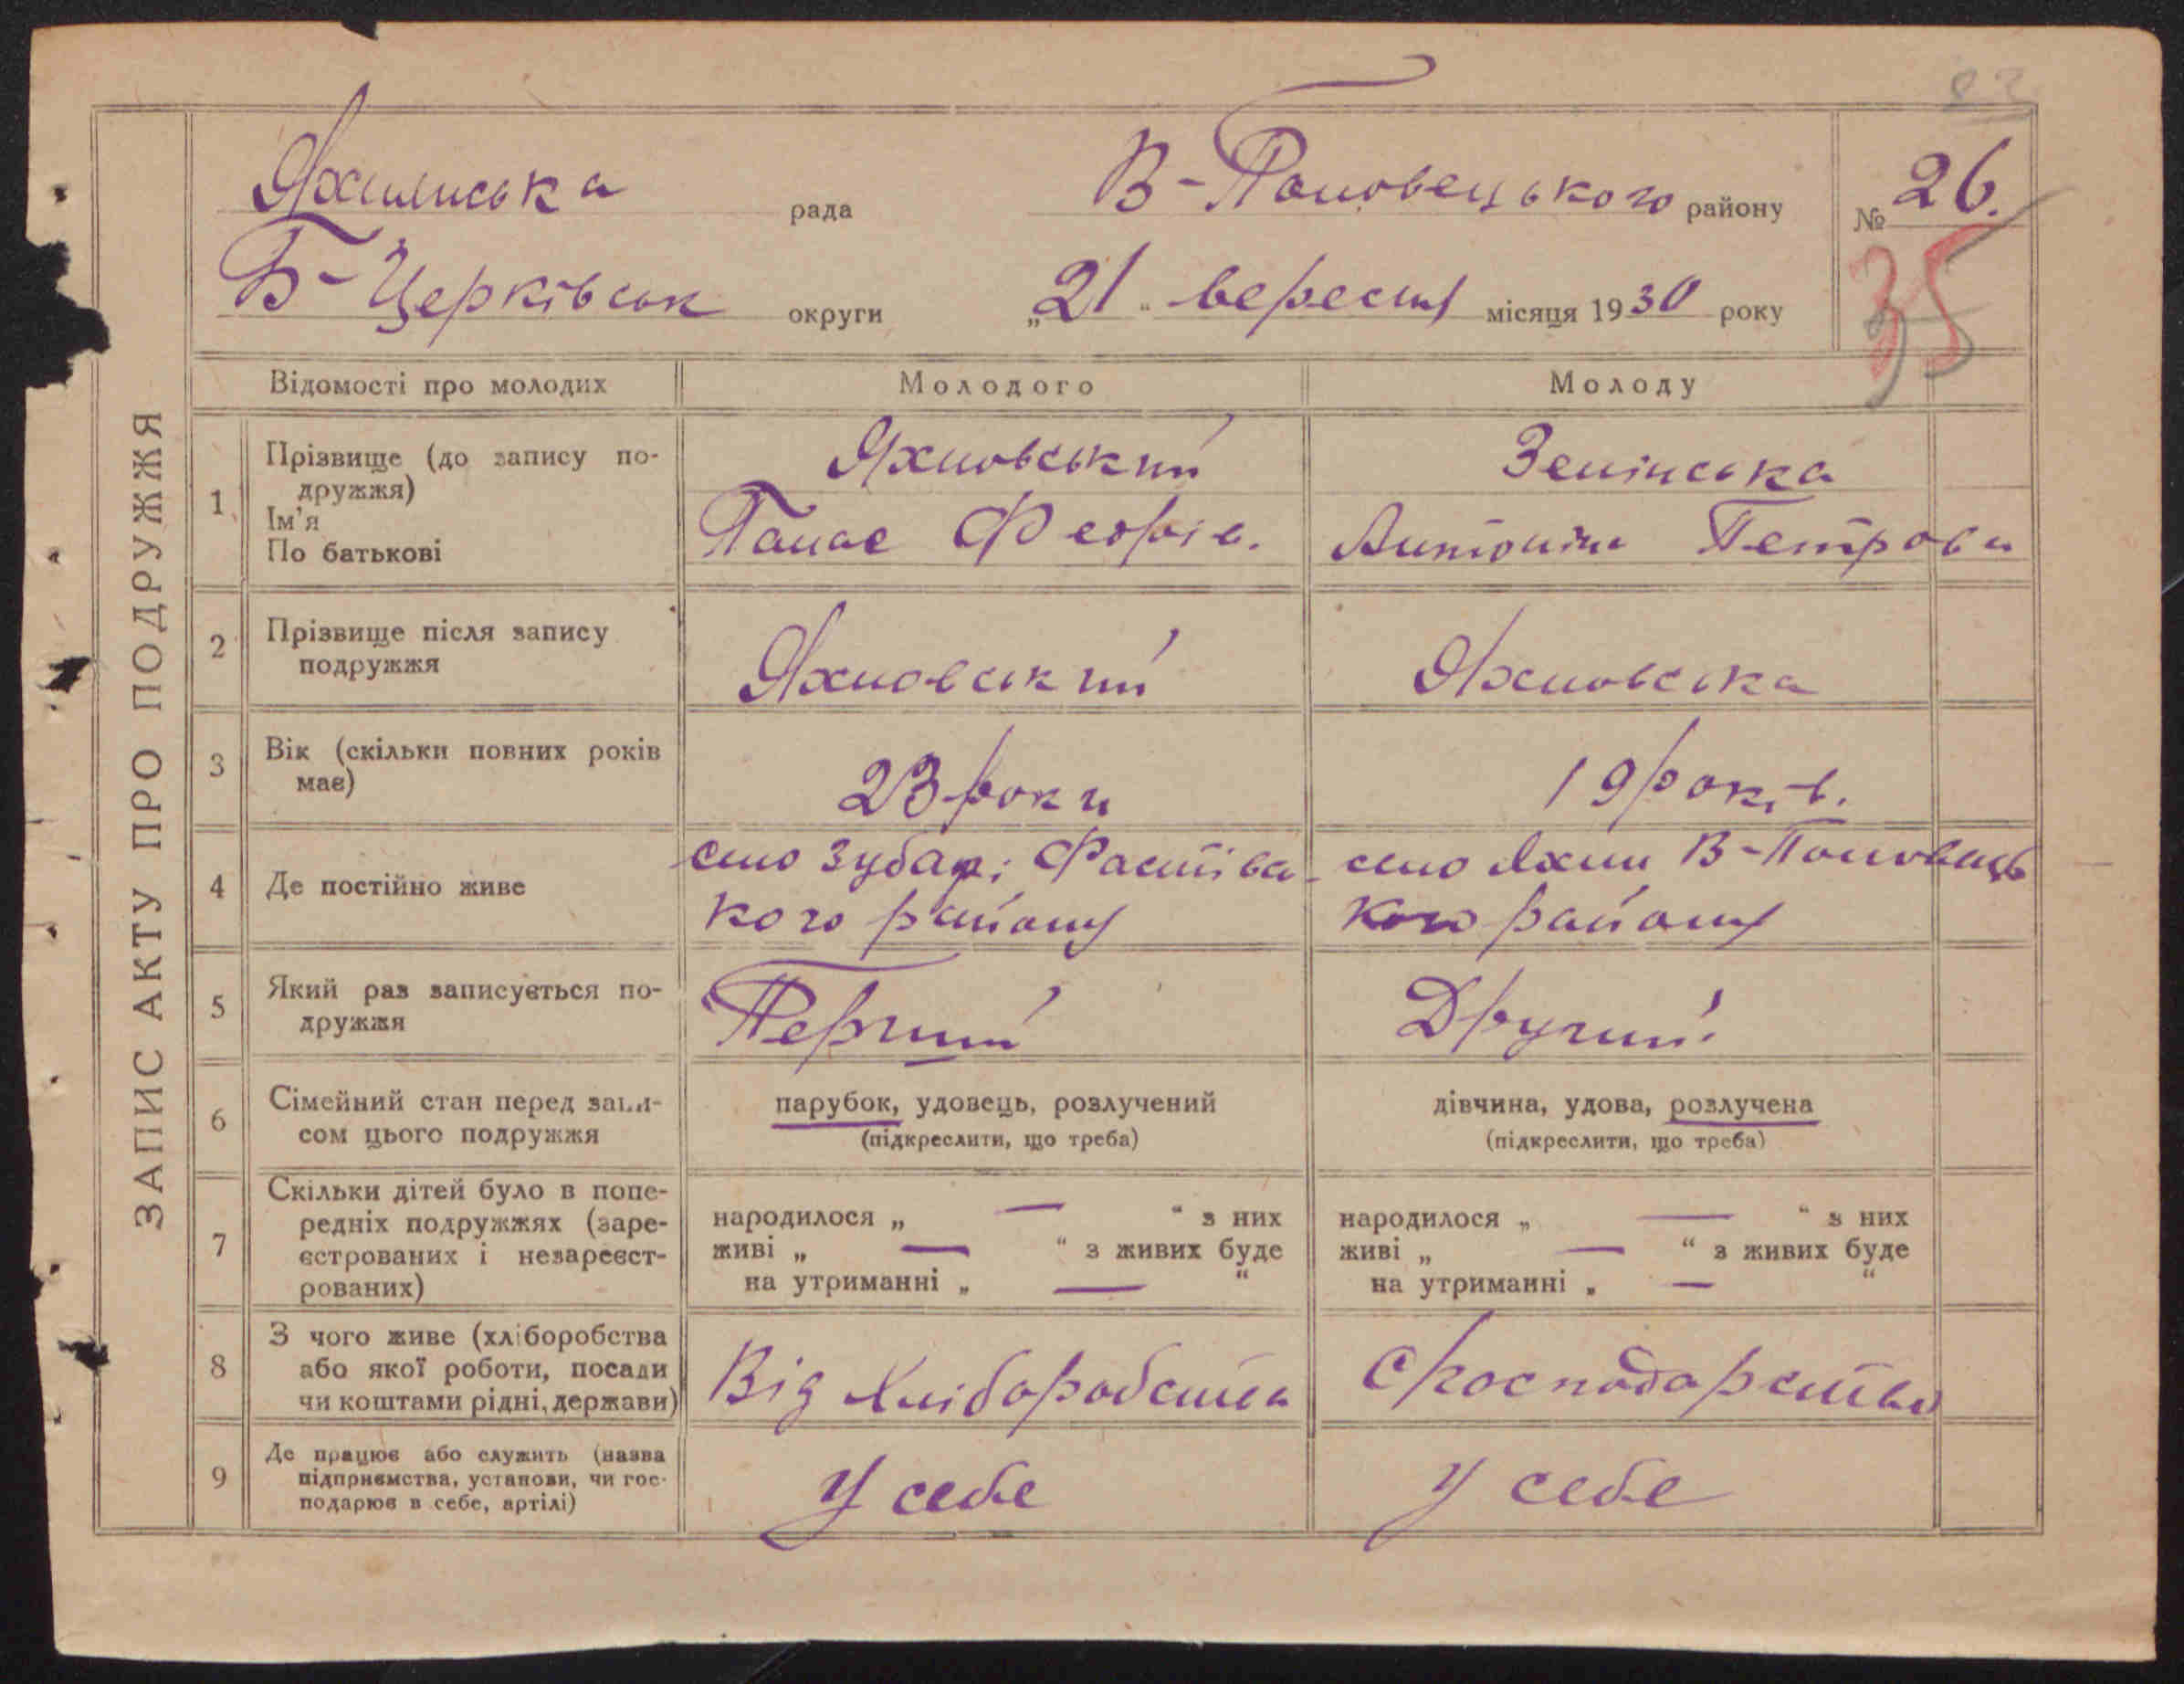 23
Яхнинська рада В-Половецького району № 26.
Б-Церківськ округи „21“ вересня місяця 1930 року
35
ЗАПИС АКТУ ПРО ПОДРУЖЖЯ
Відомості про молодих Молодого Молоду
1 Прізвище (до запису по-
дружжя)
Ім'я
По батькові
Яхновський
Панас Феорів.
Зелінська
Антоніна Петровн
2 Прізвище після запису
подружжя
Яхновський Яхновська
3 Вік (скільки повних років
має)
23 роки 19 років.
4 Де постійно живе
село Зубарі Фастівсь
кого району
село Яхни В-Половець
кого району
5 Який раз записується по-
дружжя
Перший Другий
6 Сімейний стан перед запи-
сом цього подружжя
парубок, удовець, розлучений
(підкреслити, що треба)
дівчина, удова, розлучена
(підкреслити, що треба)
7 Скільки дітей було в попе-
редніх подружжях (заре-
єстрованих і незареєст-
рованих)
народилося „ — “ з них
живі „ — “ з живих буде
на утриманні „ — “
народилося „ — “ з них
живі „ — “ з живих буде
на утриманні „ — “
8 З чого живе (хліборобства
або якої роботи, посади
чи коштами рідні, держави)
Від хліборобства
Господарства
9 Де працює або служить (назва
підприємства, установи, чи гос-
подарює в себе, артілі)
У себе У себе